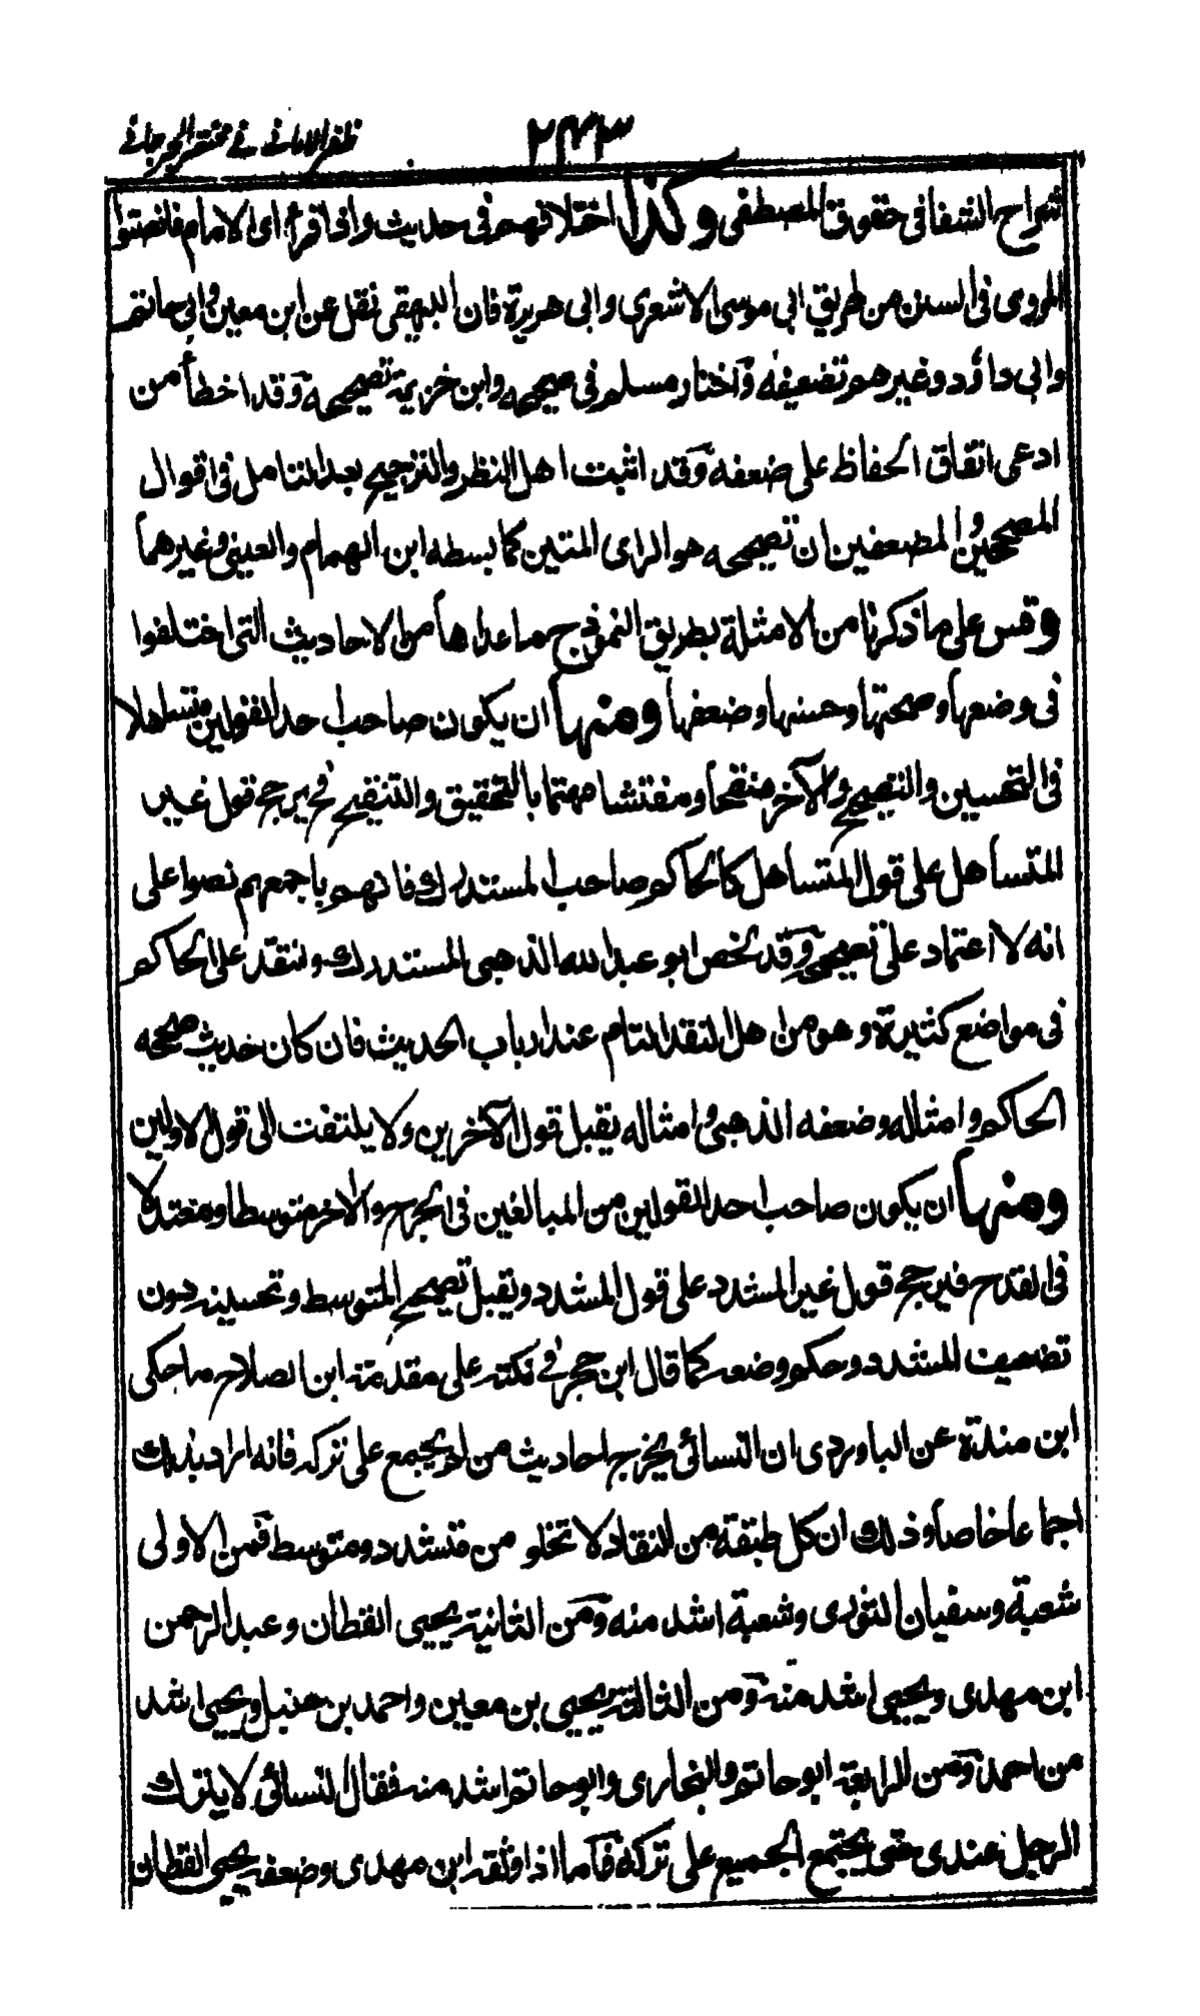 ظفر الامانی فی مختصر الجرجانی
٢٤٣
شراح الشفا فی حقوق المصطفی وكذا اختلافهم فی حديث واذا قرأ ای الامام فانصتوا
المروی فی السنن من طريق ابی موسی الاشعری وابی هريرة فان البيهقی نقل عن ابن معين وابی حاتم
وابی داؤد وغيرهم تضعيفه واختار مسلم فی صحيحه وابن خزيمة تصحيحه وقد اخطأ من
ادعی اتفاق الحفاظ علی ضعفه وقد اثبت اهل النظر والترجيح بعد التامل فی اقوال
المصححين والمضعفين ان تصحيحه هو الرای المتين كما بسطه ابن الهمام والعينی وغيرهما
وقس علی ما ذكرنا من الامثلة بطريق النموذج ما عداها من الاحاديث التی اختلفوا
فی وضعها وصحتها وحسنها وضعفها ومنها ان يكون صاحب احد القولين متساهلا
فی التحسين والتصحيح والآخر منقحا ومفتشا مهتما بالتحقيق والتنقيح فح يرجح قول غير
المتساهل علی قول المتساهل كالحاكم صاحب المستدرك فانهم باجمعهم نصوا علی
انه لا اعتماد علی تصحيحه وقد لخص ابو عبد الله الذهبی المستدرك وانتقد علی الحاكم
فی مواضع كثيرة وهو من اهل النقد التام عند ارباب الحديث فان كان حديث صححه
الحاكم وامثاله وضعفه الذهبی وامثاله يقبل قول الآخرين ولا يلتفت الی قول الاولين
ومنها ان يكون صاحب احد القولين من المبالغين فی الجرح والاخر متوسطا ومعتدلا
فی القدح فيرجح قول غير المشدد علی قول المشدد ويقبل تصحيح المتوسط وتحسينه دون
تضعيف المشدد وحكم وضعه كما قال ابن حجر فی نكته علی مقدمة ابن الصلاح ما حكی
ابن مندة عن الباوردی ان النسائی يخرج احاديث من لم يجمع علی تركه فانه اراد بذلك
اجماعا خاصا وذلك ان كل طبقة من النقاد لا تخلو من متشدد ومتوسط فمن الاولی
شعبة وسفيان الثوری وشعبة اشد منه ومن الثانية يحيی القطان وعبد الرحمن
ابن مهدی ويحيی اشد منه ومن الثالثة يحيی بن معين واحمد بن حنبل ويحيی اشد
من احمد ومن الرابعة ابو حاتم والبخاری وابو حاتم اشد منه فقال النسائی لا يترك
الرجل عندی حتی يجتمع الجميع علی تركه فاما اذا وثقه ابن مهدی وضعفه يحيی القطان